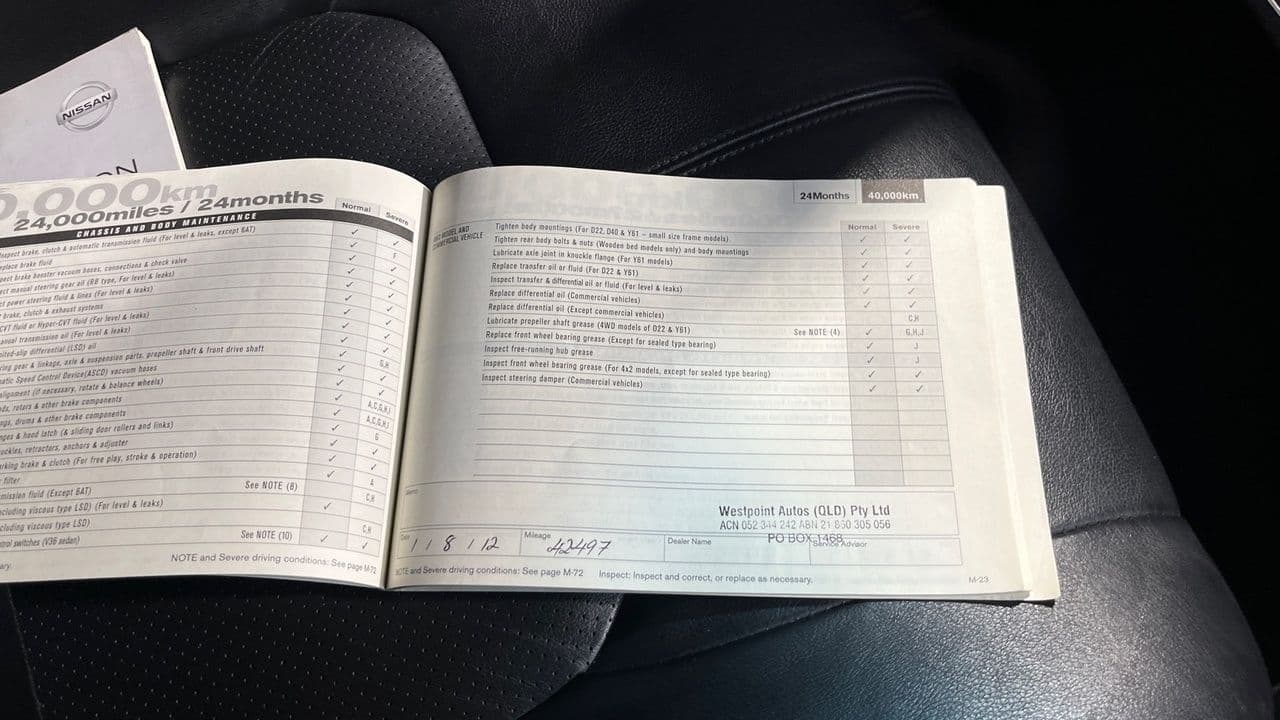 NISSAN
ON
0,000km
24,000miles / 24months
Normal
Severe
CHASSIS AND BODY MAINTENANCE
nspect brake, clutch & automatic transmission fluid (For level & leaks, except 6AT)
eplace brake fluid
pect brake booster vacuum hoses, connections & check valve
ect manual steering gear oil (RB type, For level & leaks)
ct power steering fluid & lines (For level & leaks)
brake, clutch & exhaust systems
CVT fluid or Hyper-CVT fluid (For level & leaks)
anual transmission oil (For level & leaks)
ited-slip differential (LSD) oil
ring gear & linkage, axle & suspension parts, propeller shaft & front drive shaft
G,H
atic Speed Control Device(ASCD) vacuum hoses
alignment (If necessary, rotate & balance wheels)
ds, rotors & other brake components
A,C,G,H,I
ngs, drums & other brake components
A,C,G,H,I
nges & hood latch (& sliding door rollers and links)
G
uckles, retractors, anchors & adjuster
rking brake & clutch (For free play, stroke & operation)
filter
A
smission fluid (Except 6AT)
See NOTE (8)
C,H
cluding viscous type LSD) (For level & leaks)
cluding viscous type LSD)
C,H
ntrol switches (V36 sedan)
See NOTE (10)
ary.
NOTE and Severe driving conditions: See page M-72
24Months
40,000km
Normal
Severe
MODEL AND
COMMERCIAL VEHICLE
Tighten body mountings (For D22, D40 & Y61 – small size frame models)
Tighten rear body bolts & nuts (Wooden bed models only) and body mountings
Lubricate axle joint in knuckle flange (For Y61 models)
Replace transfer oil or fluid (For D22 & Y61)
Inspect transfer & differential oil or fluid (For level & leaks)
Replace differential oil (Commercial vehicles)
Replace differential oil (Except commercial vehicles)
C,H
Lubricate propeller shaft grease (4WD models of D22 & Y61)
See NOTE (4)
G,H,J
Replace front wheel bearing grease (Except for sealed type bearing)
J
Inspect free-running hub grease
J
Inspect front wheel bearing grease (For 4x2 models, except for sealed type bearing)
Inspect steering damper (Commercial vehicles)
Memo
Westpoint Autos (QLD) Pty Ltd
ACN 052 344 242 ABN 21 860 305 056
PO BOX 1468
Date
1 / 8 / 12
Mileage
42497
Dealer Name
Service Advisor
NOTE and Severe driving conditions: See page M-72
Inspect: Inspect and correct, or replace as necessary.
M-23